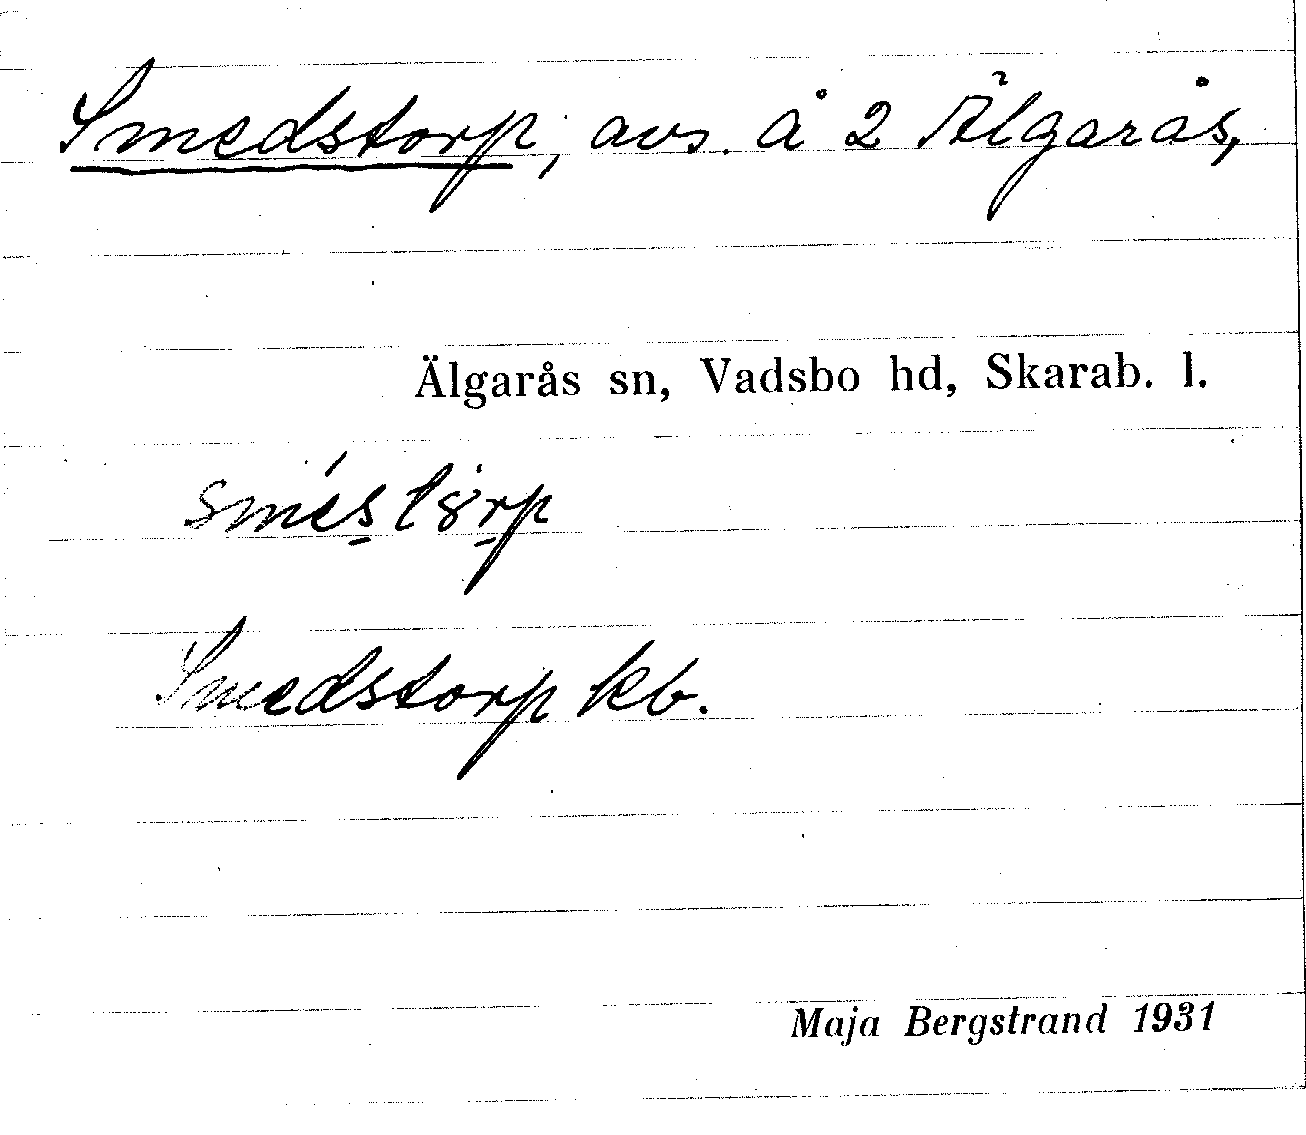 Smedstorp, avs. å 2 Älgarås,
Älgarås sn, Vadsbo hd, Skarab. l.
Smedstorp kb.
Maja Bergstrand 1931